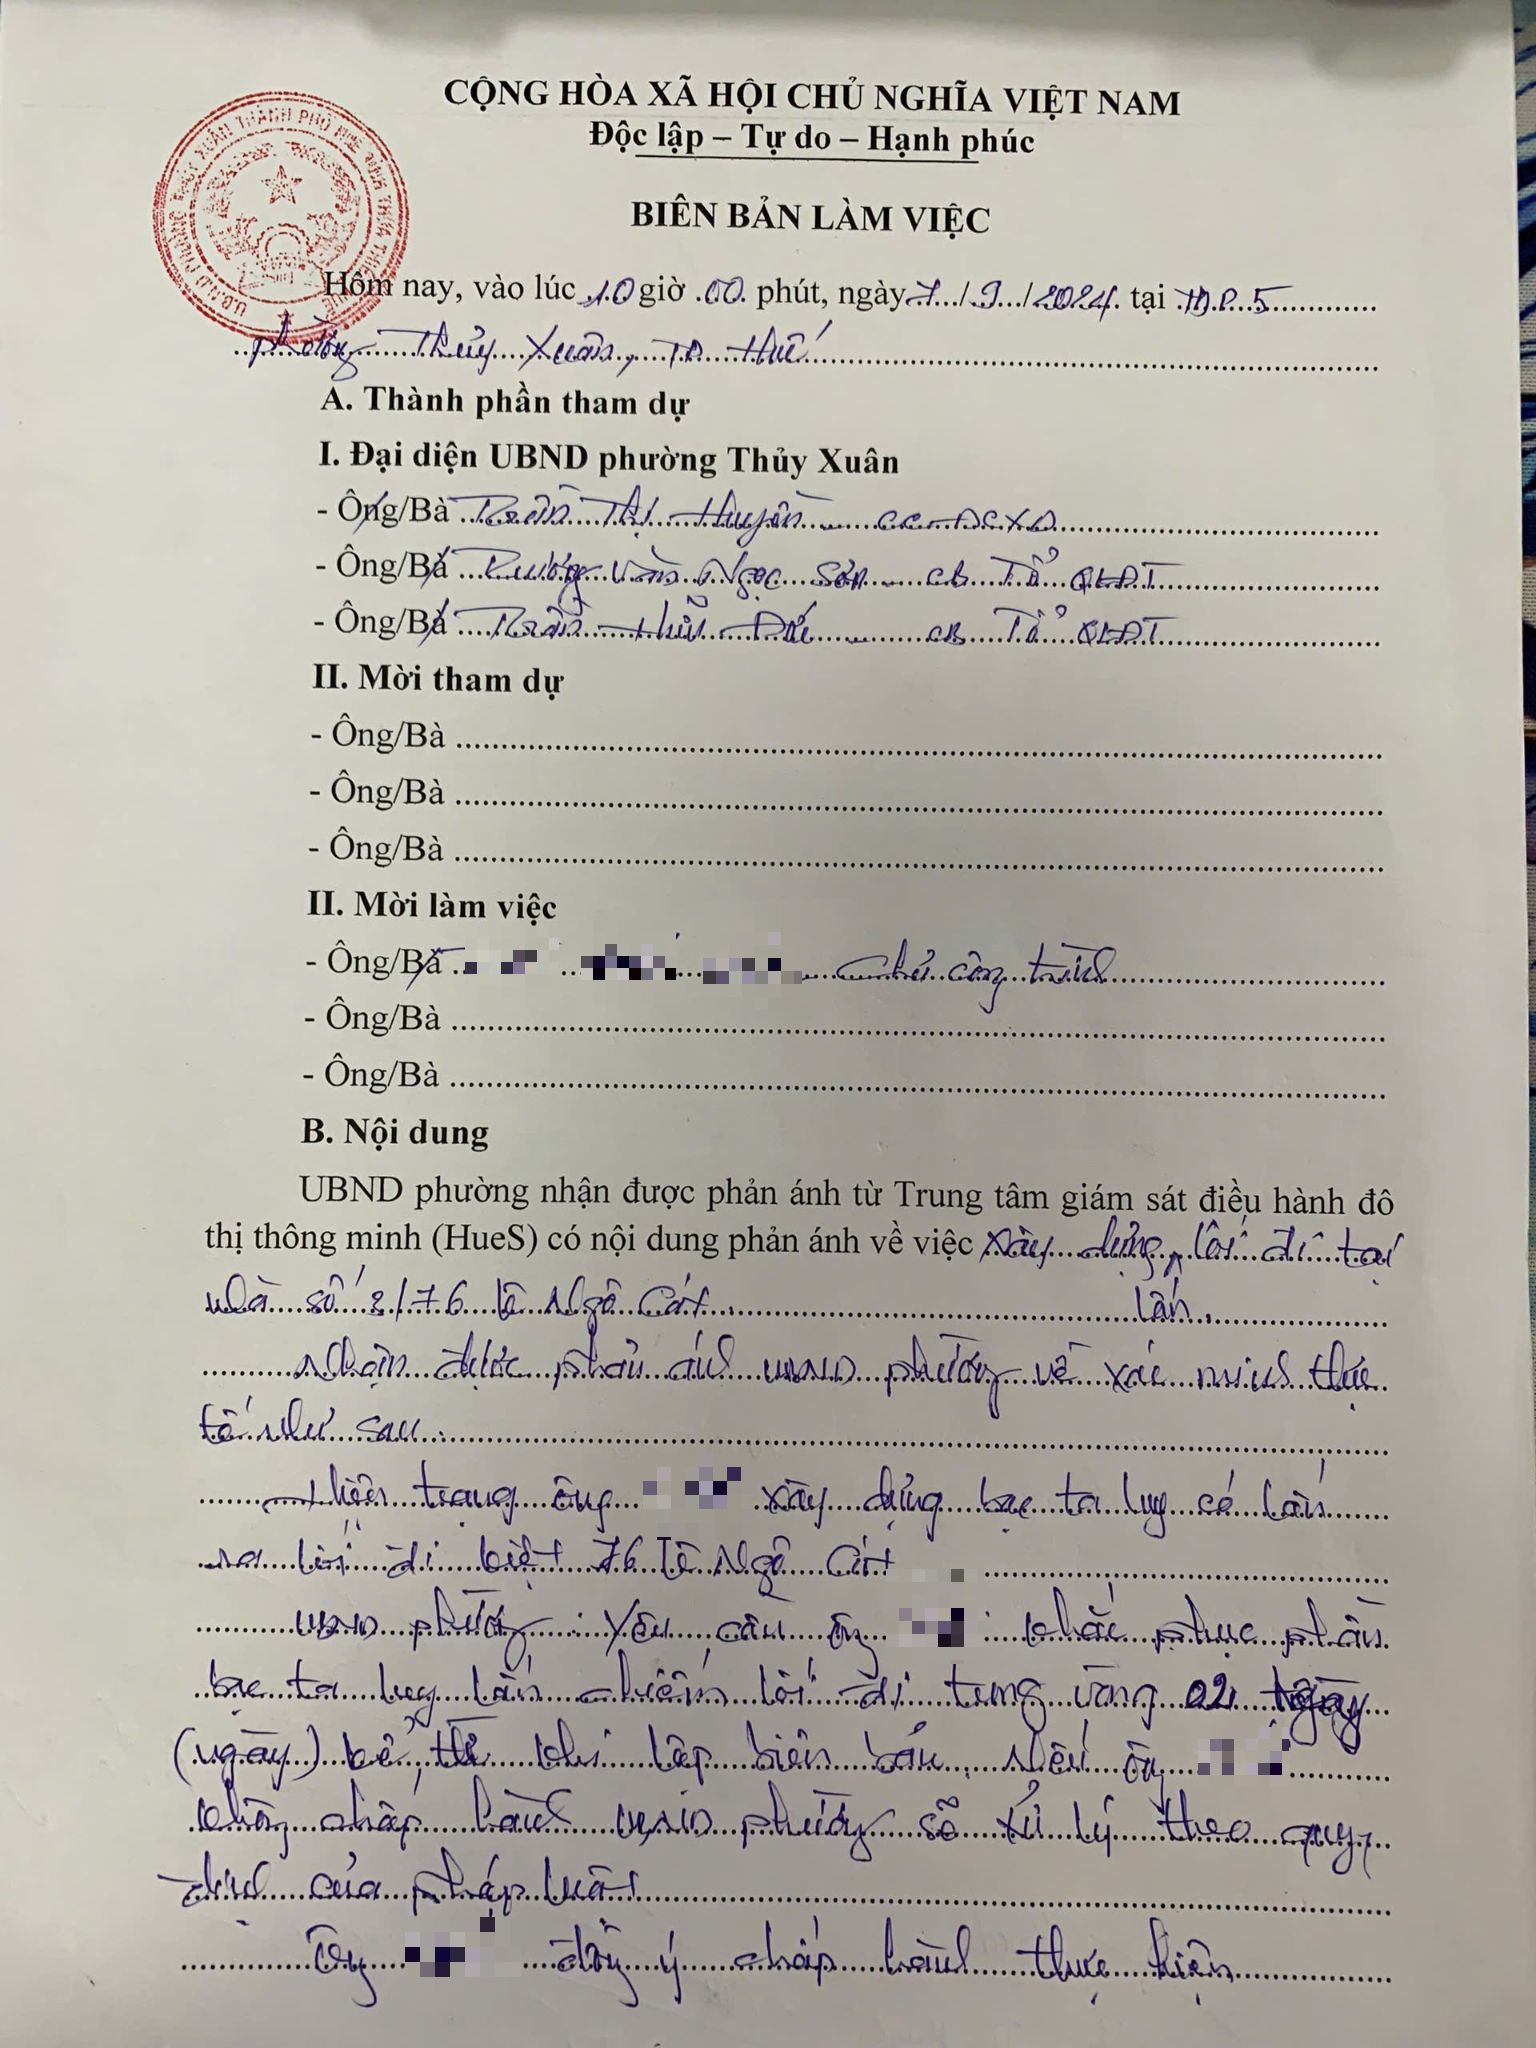 CỘNG HÒA XÃ HỘI CHỦ NGHĨA VIỆT NAM
Độc lập – Tự do – Hạnh phúc
BIÊN BẢN LÀM VIỆC
Hôm nay, vào lúc 10 giờ 00 phút, ngày 7/9/2024 tại TDP 5
phường Thủy Xuân, TP Huế
A. Thành phần tham dự
I. Đại diện UBND phường Thủy Xuân
- Ông/Bà Trần Thị Huyền - CC-ĐCXD
- Ông/Bà Trương Văn Ngọc Sơn - CB Tổ QLĐT
- Ông/Bà Trần Hữu - CB Tổ QLĐT
II. Mời tham dự
- Ông/Bà
- Ông/Bà
- Ông/Bà
II. Mời làm việc
- Ông/Bà - Chủ công trình
- Ông/Bà
- Ông/Bà
B. Nội dung
UBND phường nhận được phản ánh từ Trung tâm giám sát điều hành đô
thị thông minh (HueS) có nội dung phản ánh về việc xây dựng lối đi tại
nhà số 8/76 Lê Ngô Cát. lấn
Nhận được phản ánh UBND phường về xác minh thực
tế như sau:
Hiện trạng ông xây dựng bạc ta luy có lấn
ra lối đi kiệt 76 Lê Ngô Cát
UBND phường yêu cầu ông khắc phục phần
bạc ta luy lấn chiếm lối đi trong vòng 02 ngày
(ngày) kể từ khi lập biên bản, nếu ông
không chấp hành UBND phường sẽ xử lý theo quy
định của pháp luật
Ông đồng ý chấp hành thực hiện